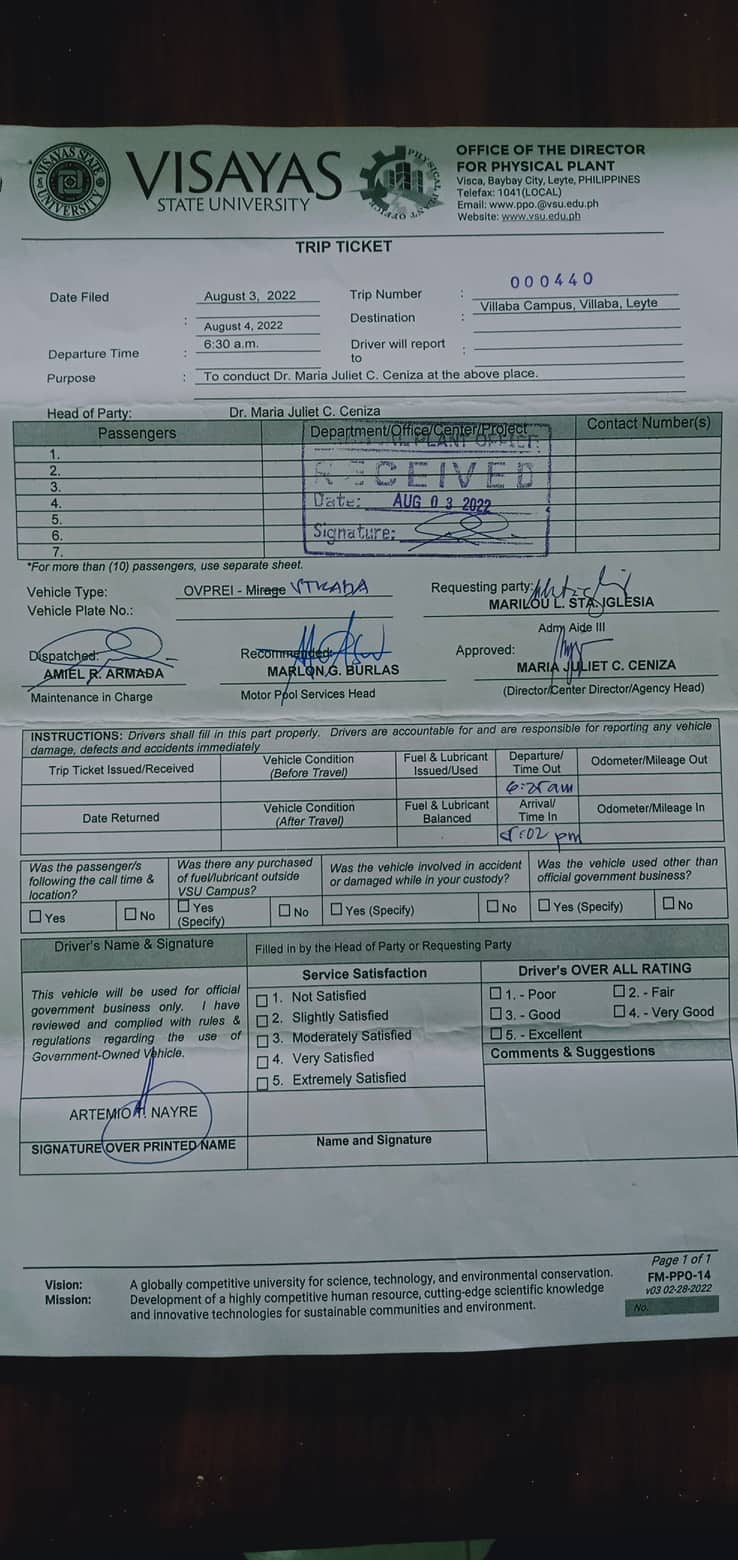 VISAYAS STATE UNIVERSITY
VISAYAS
STATE UNIVERSITY
PHYSICAL PLANT OFFICE
OFFICE OF THE DIRECTOR
FOR PHYSICAL PLANT
Visca, Baybay City, Leyte, PHILIPPINES
Telefax: 1041(LOCAL)
Email: www.ppo.@vsu.edu.ph
Website: www.vsu.edu.ph
TRIP TICKET
Date Filed August 3, 2022 Trip Number : 000440
: August 4, 2022 Destination : Villaba Campus, Villaba, Leyte
Departure Time : 6:30 a.m. Driver will report to :
Purpose : To conduct Dr. Maria Juliet C. Ceniza at the above place.
Head of Party: Dr. Maria Juliet C. Ceniza
Passengers Department/Office/Center/Project Contact Number(s)
1.
2.
3.
4.
5.
6.
7.
PLANT OFFICE
RECEIVED
Date: AUG 03 2022
Signature:
*For more than (10) passengers, use separate sheet.
Vehicle Type: OVPREI - Mirage STRADA Requesting party:
Vehicle Plate No.: MARILOU L. STA. IGLESIA
Adm Aide III
Dispatched: Recommended: Approved:
AMIEL R. ARMADA MARLON G. BURLAS MARIA JULIET C. CENIZA
Maintenance in Charge Motor Pool Services Head (Director/Center Director/Agency Head)
INSTRUCTIONS: Drivers shall fill in this part properly. Drivers are accountable for and are responsible for reporting any vehicle
damage, defects and accidents immediately
Trip Ticket Issued/Received Vehicle Condition (Before Travel) Fuel & Lubricant Issued/Used Departure/ Time Out Odometer/Mileage Out
6:25 am
Date Returned Vehicle Condition (After Travel) Fuel & Lubricant Balanced Arrival/ Time In Odometer/Mileage In
:02 pm
Was the passenger/s following the call time & location?
Was there any purchased of fuel/lubricant outside VSU Campus?
Was the vehicle involved in accident or damaged while in your custody?
Was the vehicle used other than official government business?
Yes No Yes (Specify) No Yes (Specify) No Yes (Specify) No
Driver's Name & Signature Filled in by the Head of Party or Requesting Party
This vehicle will be used for official
government business only. I have
reviewed and complied with rules &
regulations regarding the use of
Government-Owned Vehicle.
ARTEMIO NAYRE
SIGNATURE OVER PRINTED NAME
Service Satisfaction
1. Not Satisfied
2. Slightly Satisfied
3. Moderately Satisfied
4. Very Satisfied
5. Extremely Satisfied
Name and Signature
Driver's OVER ALL RATING
1. - Poor 2. - Fair
3. - Good 4. - Very Good
5. - Excellent
Comments & Suggestions
Page 1 of 1
FM-PPO-14
v03 02-28-2022
No.
Vision: A globally competitive university for science, technology, and environmental conservation.
Mission: Development of a highly competitive human resource, cutting-edge scientific knowledge
and innovative technologies for sustainable communities and environment.